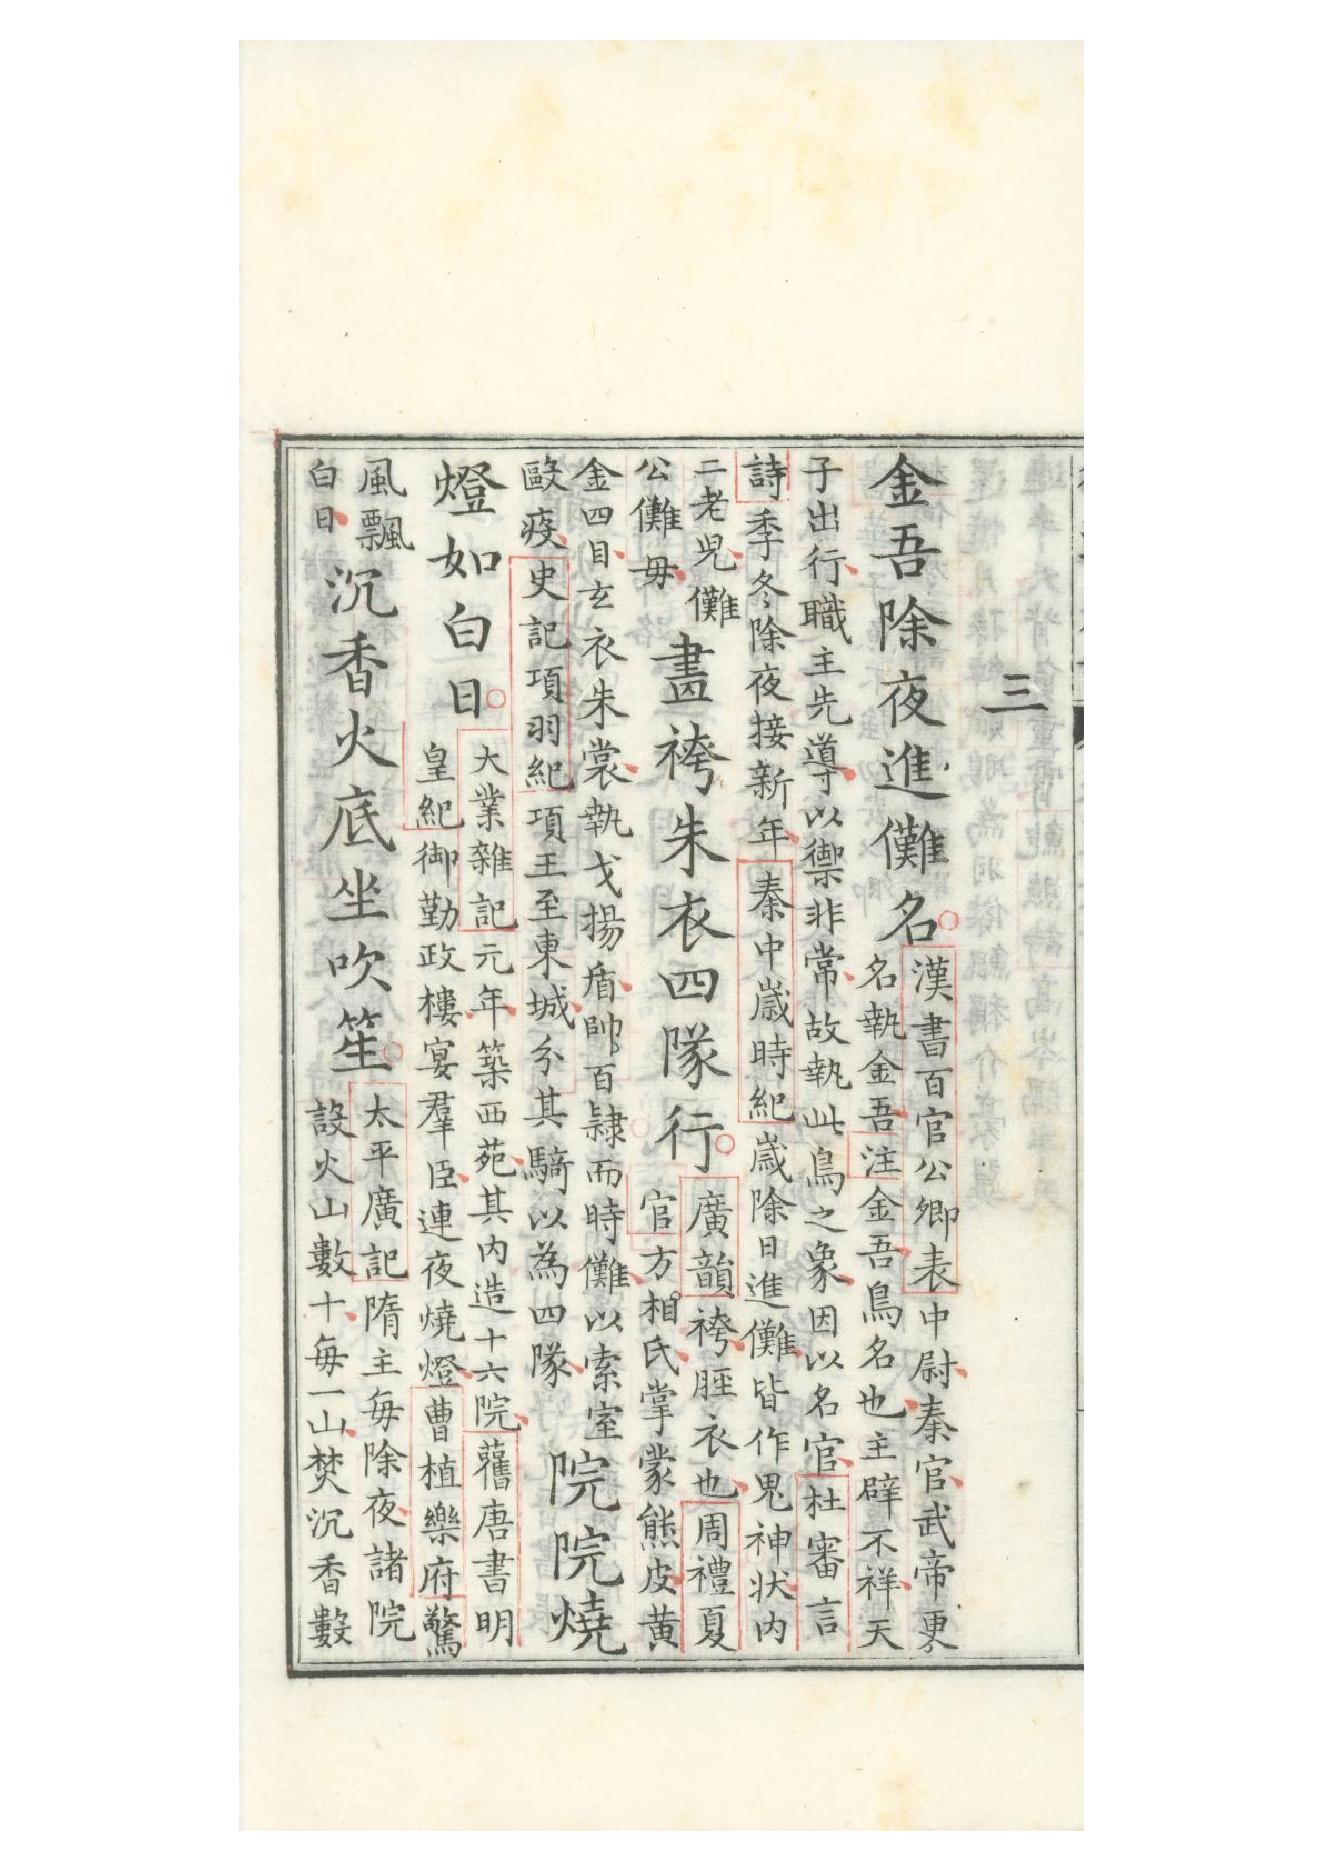 三
金吾除夜進儺名
漢書百官公卿表中尉秦官武帝更
名執金吾注金吾鳥名也主辟不祥天
子出行職主先導以禦非常故執此鳥之象因以名官杜審言
詩季冬除夜接新年秦中歲時紀歲除日進儺皆作鬼神狀内
二老兒儺
公儺毋
畫袴朱衣四隊行
廣韻袴脛衣也周禮夏
官方相氏掌蒙熊皮黄
金四目玄衣朱裳執戈揚盾帥百隸而時儺以索室
歐疫史記項羽紀項王至東城分其騎以為四隊
院院燒
燈如白日
大業雜記元年築西苑其内造十六院舊唐書明
皇紀御勤政樓宴羣臣連夜燒燈曹植樂府驚
風飄
白日
沉香火底坐吹笙
太平廣記隋主每除夜諸院
設火山數十每一山焚沉香數